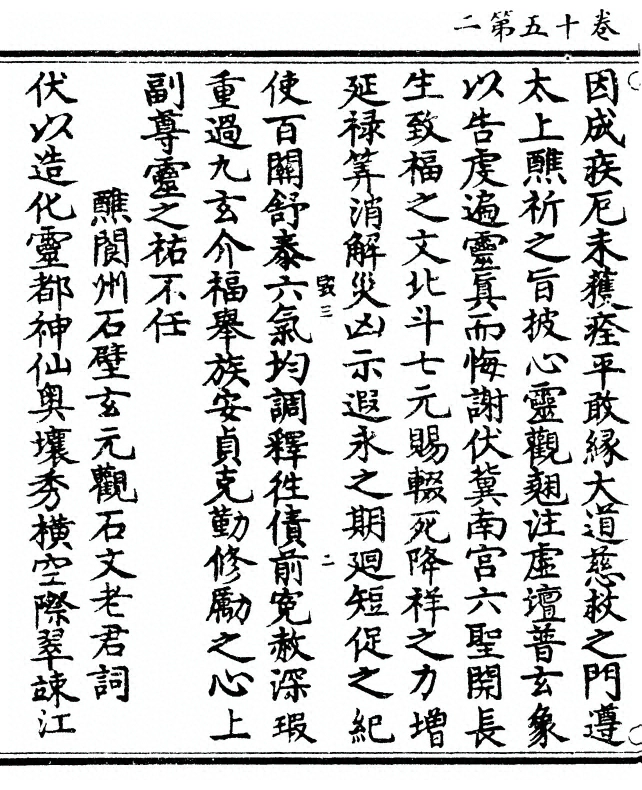 卷十五第二
因成疾厄未獲痊平敢緣大道慈救之門遵
太上醮祈之旨披心靈觀翹注虛壇普玄象
以告虔遍靈真而悔謝伏冀南宮六聖開長
生致福之文北斗七元賜輟死降祥之力增
延祿筭消解災凶示遐永之期廻短促之紀
使百關舒泰六氣均調釋徃債前寃赦深瑕
𣫍三
二
重過九玄介福舉族安貞克勤修勵之心上
副尊靈之祐不任
醮閬州石壁玄元觀石文老君詞
伏以造化靈都神仙奥壤秀橫空際翠竦江